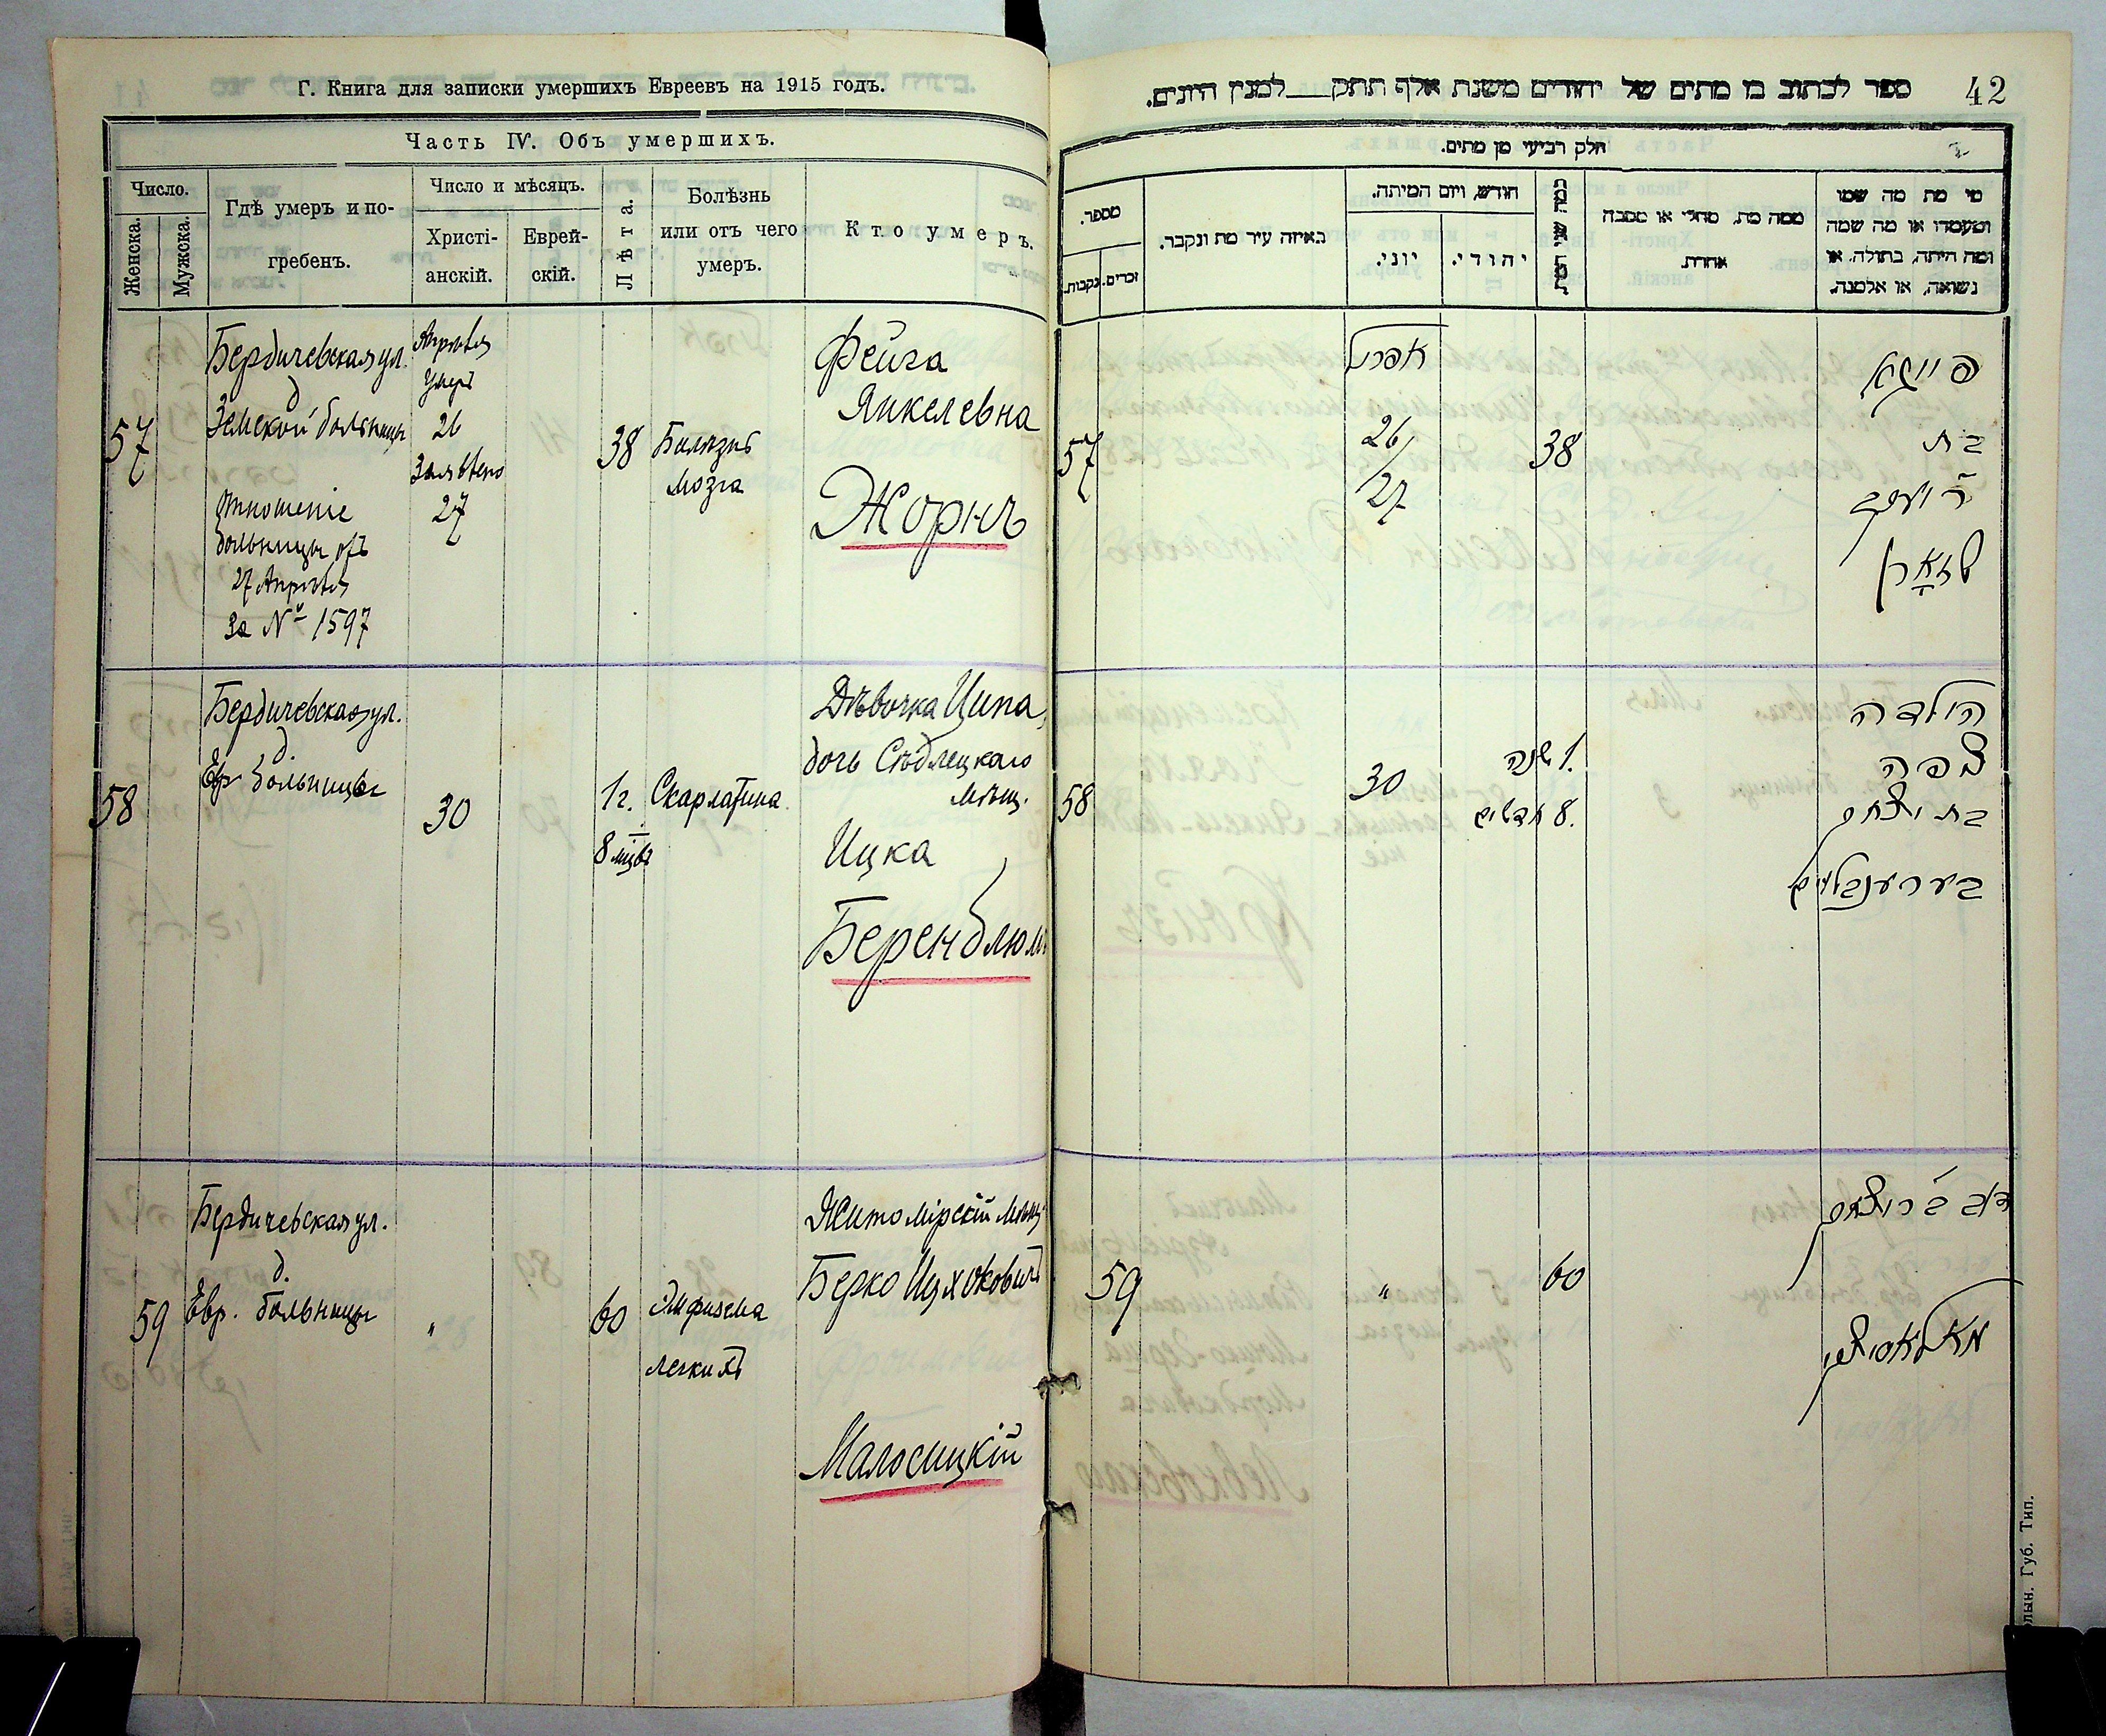 Г. Книга для записки умершихъ Евреевъ на 1915 годъ.
Часть IV. Объ умершихъ.
Число.
Женска.
Мужска.
Гдѣ умеръ и по-
гребенъ.
Число и мѣсяцъ.
Христі-
анскій.
Еврей-
скій.
Лѣта.
Болѣзнь
или отъ чего
умеръ.
Кто умеръ.
57
Бердичевская ул.
д
Земской больницы
Отношеніе
больницы отъ
27 Апрѣля
за № 1597
Апрѣля
Умеръ
26
Заявлено
27
38
Болѣзнь
мозга
Фейга
Янкелевна
Жорнъ
58
Бердичевская ул.
д.
Евр больницы
30
1 г.
8 мцвъ
Скарлатина
Дѣвочка Ципа,
дочь Сѣдлецкаго
мѣщ.
Ицка
Беренблюмъ
59
Бердичевская ул.
д.
Евр. больницы
"
60
Эмфизема
легкихъ
Житомірскій мѣщ
Берко Ицховичъ
Малосицкій
ספר לכתוב בו מתים של יהודים משנת אלף תתק למנין היונים.
42
חלק רביעי מן מתים.
מספר.
זכרים.
נקבות.
באיזה עיר מת ונקבר.
חודש, ויום המיתה.
יוני.
יהודי.
כמה שני המת
ממה מת, מחלי או מסבה
אחרת.
מי מת מה שמו
ומעמדו או מה שמה
ומה היתה, בתולה, או
נשואה, או אלמנה.
57
אפריל
26
27
38
פייגא
בת
ר' יעקב
זשארן
58
30
1 שנה
8 חדשים
הילדה
צפה
בת יצחק
בערענבלום
59
"
60
דוב ב"ר יצחק
מאלאסיצקי
Губ. Тип.